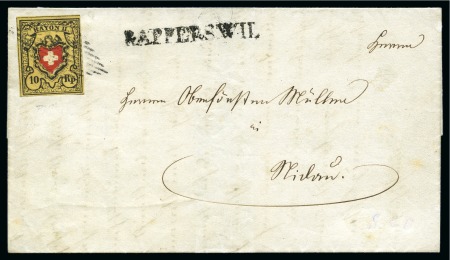 RAYON II.
10 Rp.
RAPPERSWIL
Herrn
Herrn Oberförster Müller
in
Nidau.